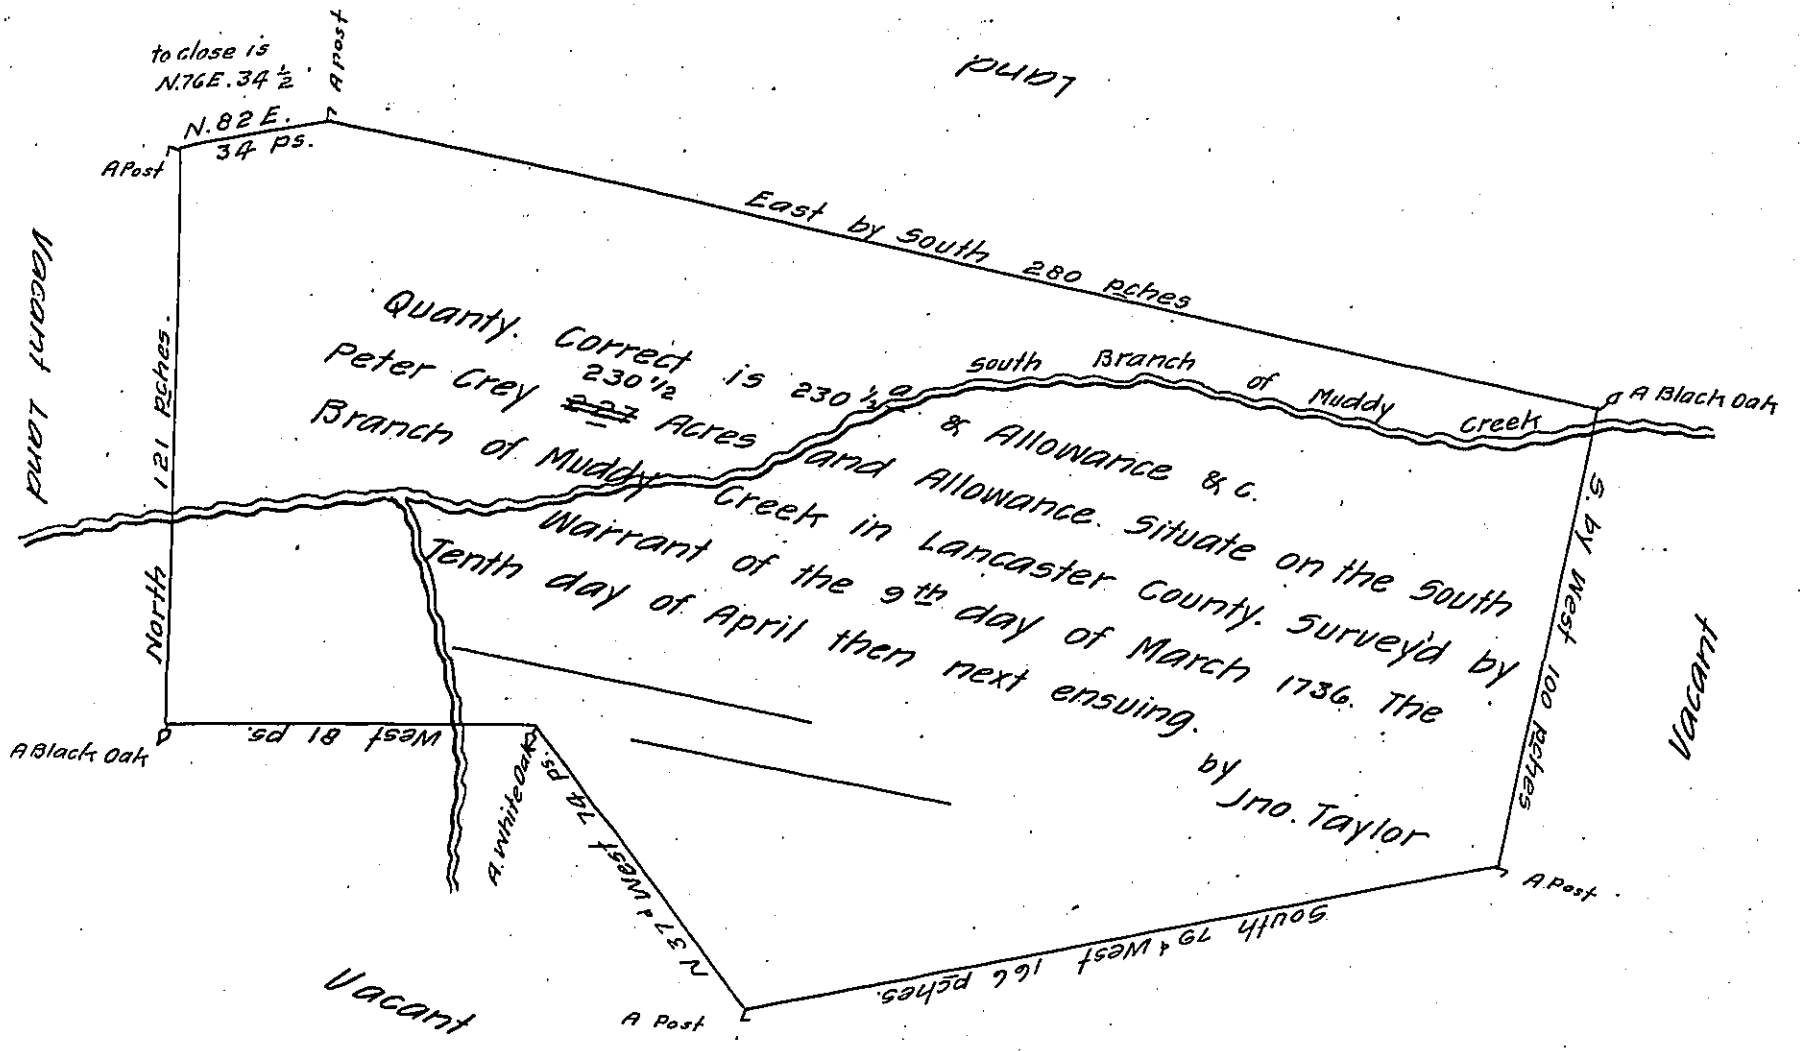 to close is
N.76E. 34 1/2
A post
Land
N. 82 E.
34 ps.
A Post
East by South 280 pches
Vacant Land
North 121 pches.
Quanty. Correct is 230 1/2 a & Allowance & c.
230 1/2
Peter Crey 227 Acres and Allowance. Situate on the South
Branch of Muddy Creek in Lancaster County. Survey'd by
Warrant of the 9th day of March 1736. The
Tenth day of April then next ensuing.
by
Jno. Taylor
South Branch of Muddy Creek
A Black Oak
S. by West 100 pches
Vacant
A Black Oak
West 81 ps
A. White Oak
N 37d West 74 ps.
A Post
South 79d West 166 pches.
Vacant
A Post